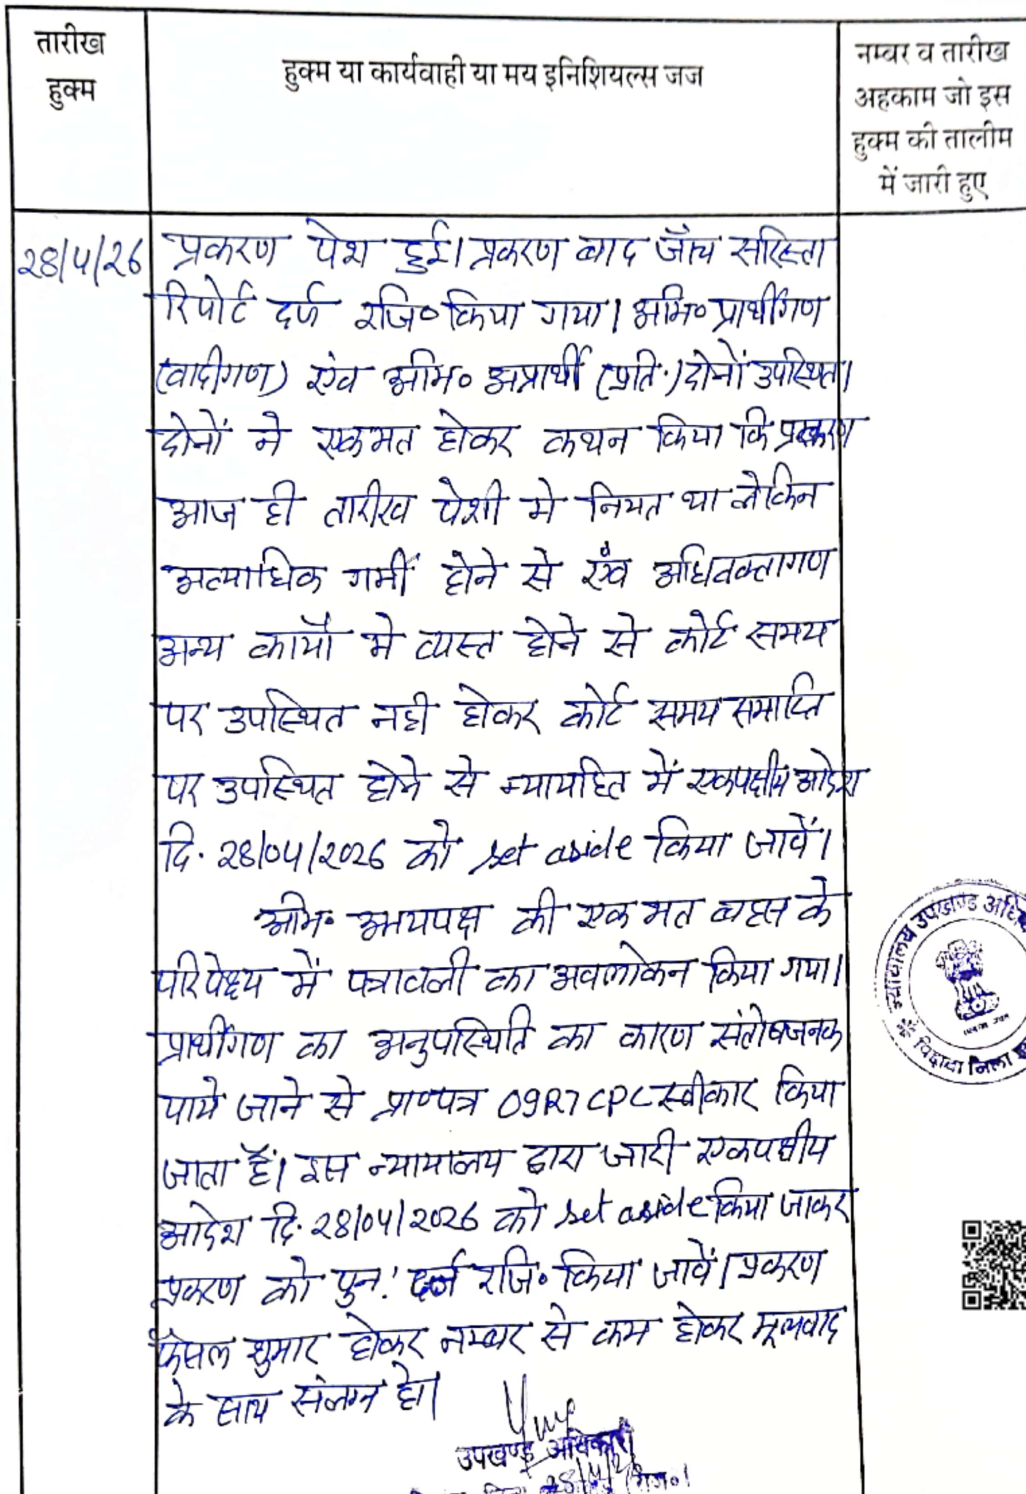 तारीख
हुक्म
हुक्म या कार्यवाही या मय इनिशियल्स जज
नम्बर व तारीख
अहकाम जो इस
हुक्म की तालीम
में जारी हुए
28/4/26
प्रकरण पेश हुई। प्रकरण बाद जाँच सरिस्ता
रिपोर्ट दर्ज रजि० किया गया। अभि० प्रार्थीगण
(वादीगण) एंव अभि० अप्रार्थी (प्रति.) दोनों उपस्थित।
दोनों ने एकमत होकर कथन किया कि प्रकरण
आज ही तारीख पेशी मे नियत था लेकिन
अत्याधिक गर्मी होने से एंव अधिवक्तागण
अन्य कार्यो मे व्यस्त होने से कोर्ट समय
पर उपस्थित नही होकर कोर्ट समय समाप्ति
पर उपस्थित होने से न्यायहित में एकपक्षीय आदेश
दि. 28/04/2026 को set aside किया जावें।
अभि० उभयपक्ष की एक मत बहस के
परिपेक्ष्य में पत्रावली का अवलोकन किया गया।
प्रार्थीगण का अनुपस्थिति का कारण संतोषजनक
पाये जाने से प्रा०पत्र O9R7 CPC स्वीकार किया
जाता हैं। इस न्यायालय द्वारा जारी एकपक्षीय
आदेश दि. 28/04/2026 को set aside किया जाकर
प्रकरण को पुन: दर्ज रजि० किया जावें। प्रकरण
फैसल शुमार होकर नम्बर से कम होकर मूलवाद
के साथ संलग्न हो।
उपखण्ड अधिकारी
न्यायालय उपखण्ड
जिला